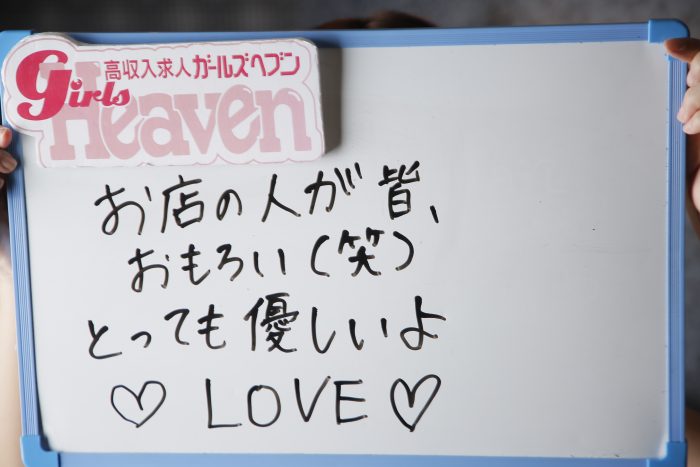 高収入求人ガールズヘブン
Girls
Heaven
お店の人が皆、
おもろい(笑)
とっても優しいよ
♡ LOVE♡